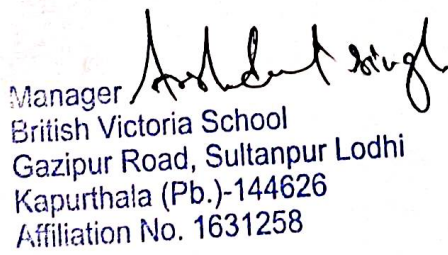 Manager singh
British Victoria School
Gazipur Road, Sultanpur Lodhi
Kapurthala (Pb.)-144626
Affiliation No. 1631258